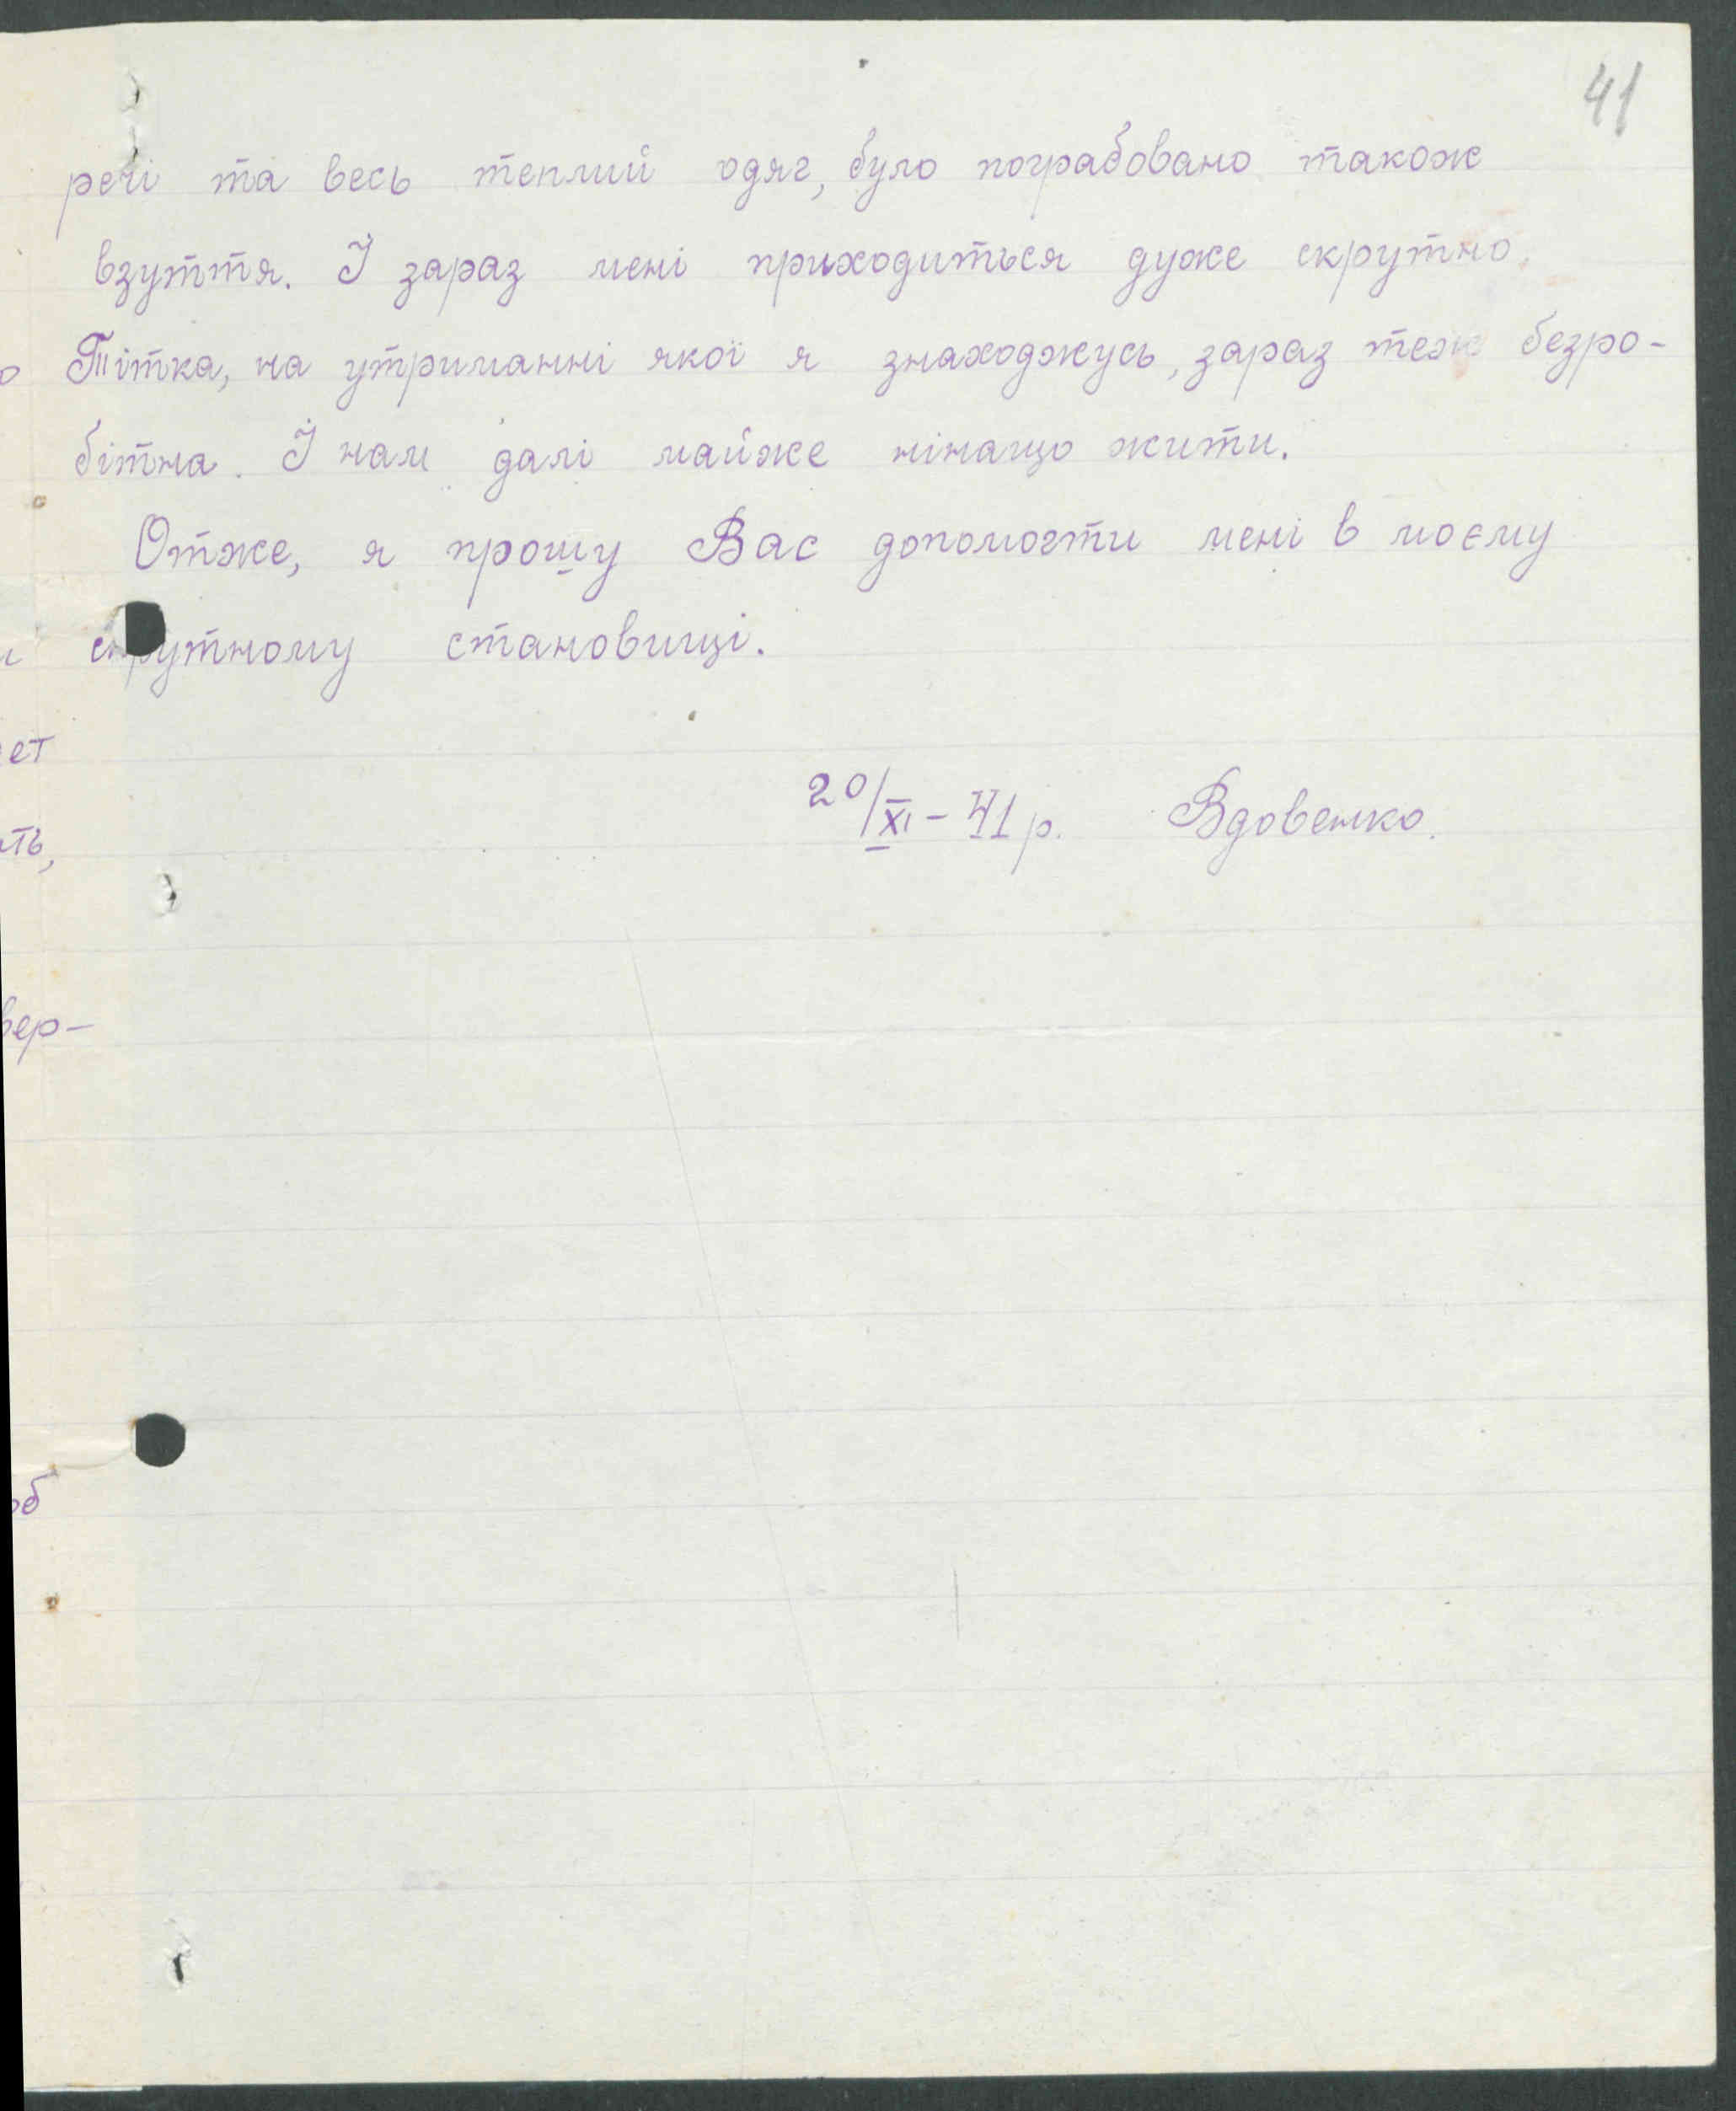 41
речі та весь теплий одяг, було пограбовано також
взуття. І зараз мені приходиться дуже скрутно.
Тітка, на утриманні якої я знаходжусь, зараз теж безро-
бітна. І нам далі майже нінащо жити.
Отже, я прошу Вас допомогти мені в моєму
скрутному становищі.
20/XI – 41 р. Вдовенко.
ет
ть,
вер-
об